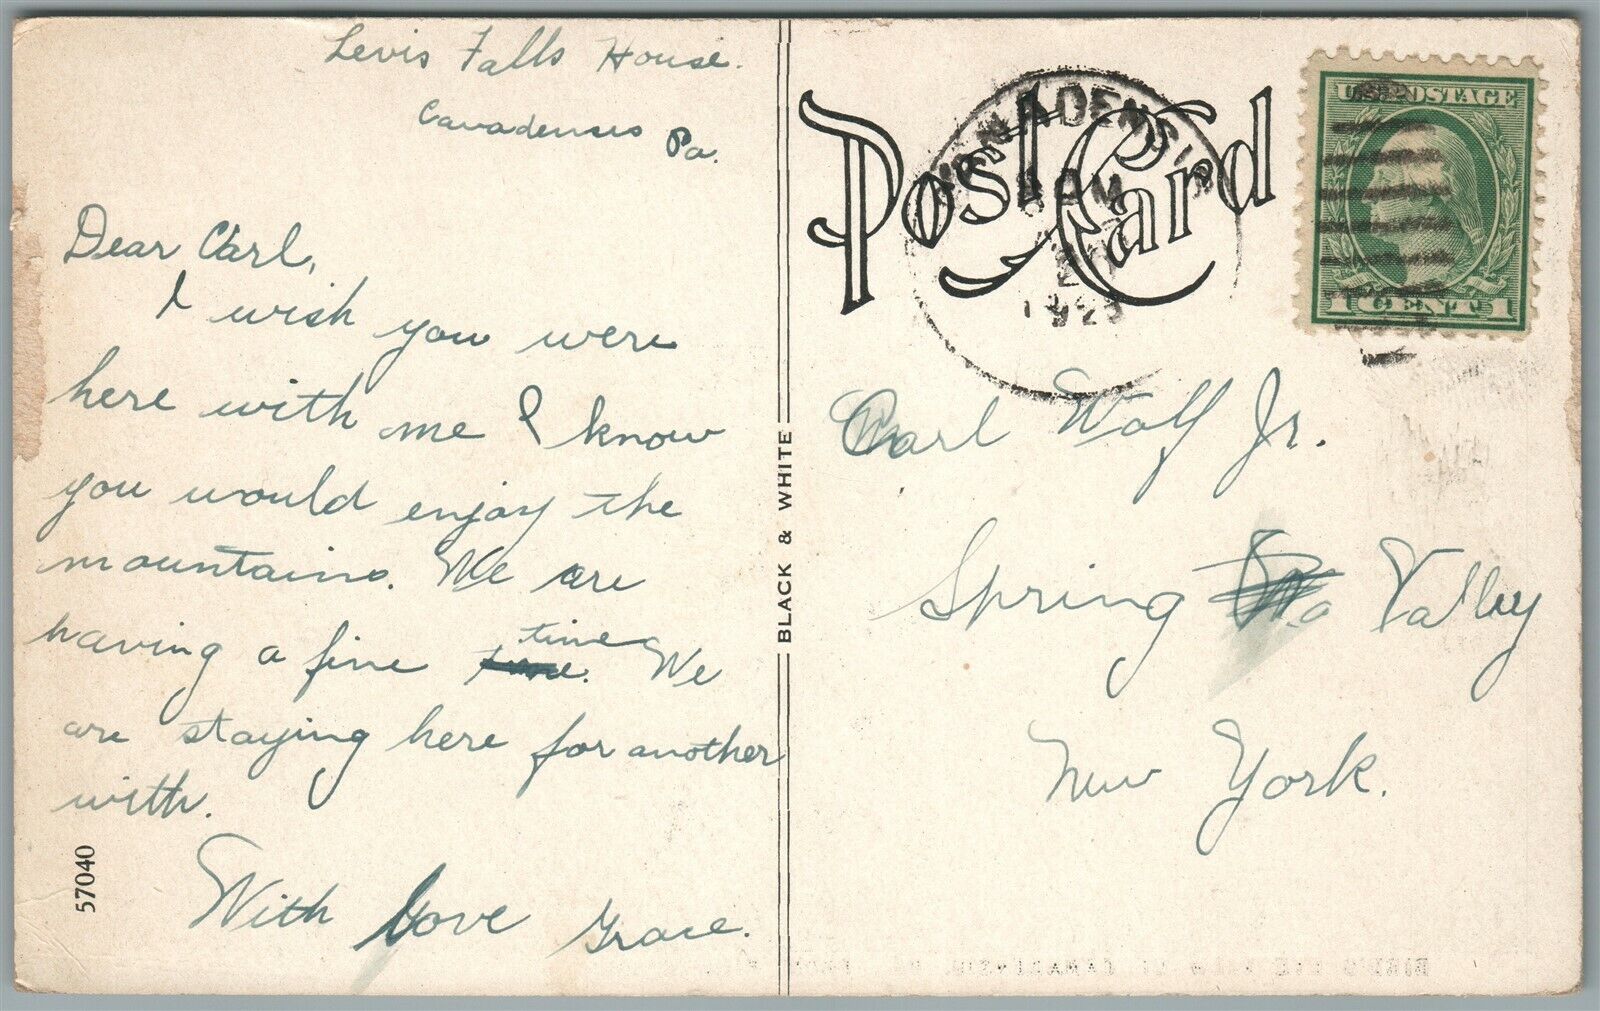 Levis Falls House.
Cavadensis Pa.
Dear Carl,
I wish you were
here with me I know
you would enjoy the
mountains. We are
having a fine time We
are staying here for another
with.
With Love Grace.
57040
BLACK & WHITE
Post Card
CANADENSIS
1923
U.S. POSTAGE
1 CENT 1
Carl Wolf Jr.
Spring Valley
New York.